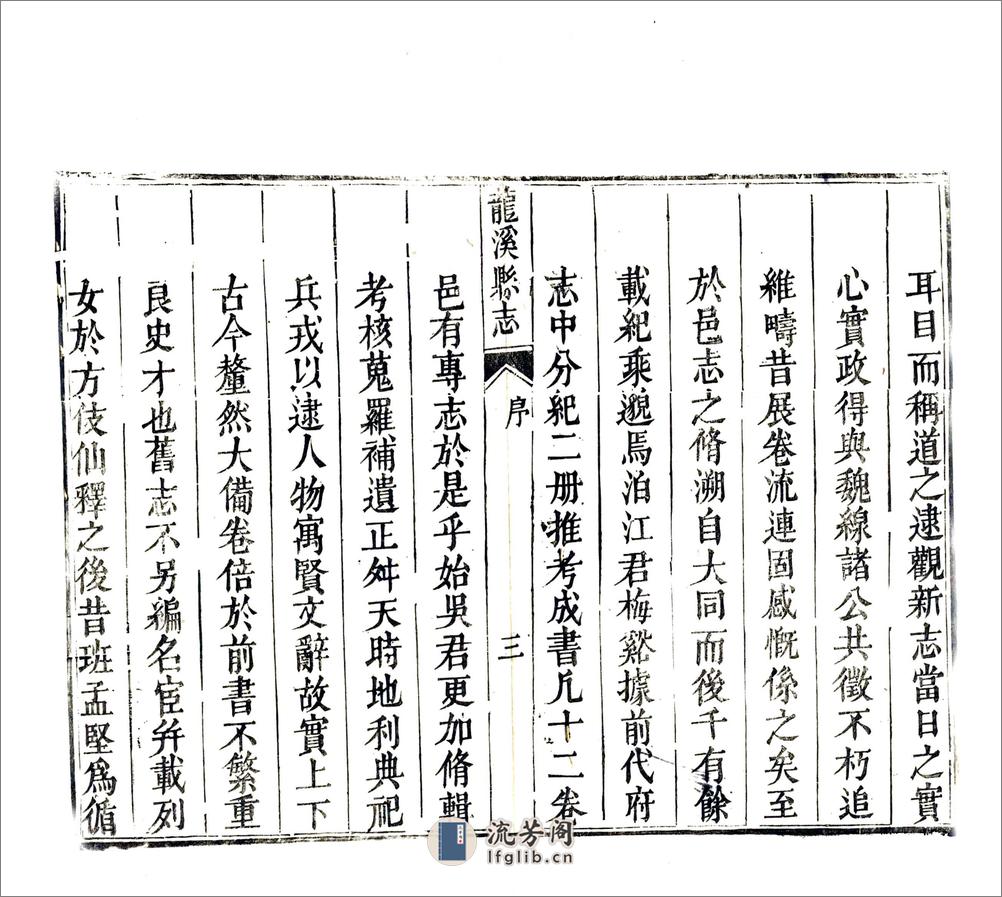 耳目而稱道之逮觀新志當日之實
心實政得與魏線諸公共徵不朽追
維疇昔展卷流連固感慨係之矣至
於邑志之脩溯自大同而後千有餘
載紀乘邈焉泊江君梅谿據前代府
志中分紀二册推考成書凡十二卷
龍溪縣志
序
三
邑有專志於是乎始吳君更加脩輯
考核蒐羅補遺正舛天時地利典祀
兵戎以逮人物寓賢文辭故實上下
古今釐然大備卷倍於前書不繁重
良史才也舊志不另編名宦弁載列
女於方伎仙釋之後昔班孟堅爲循
流芳阁
lfglib.cn